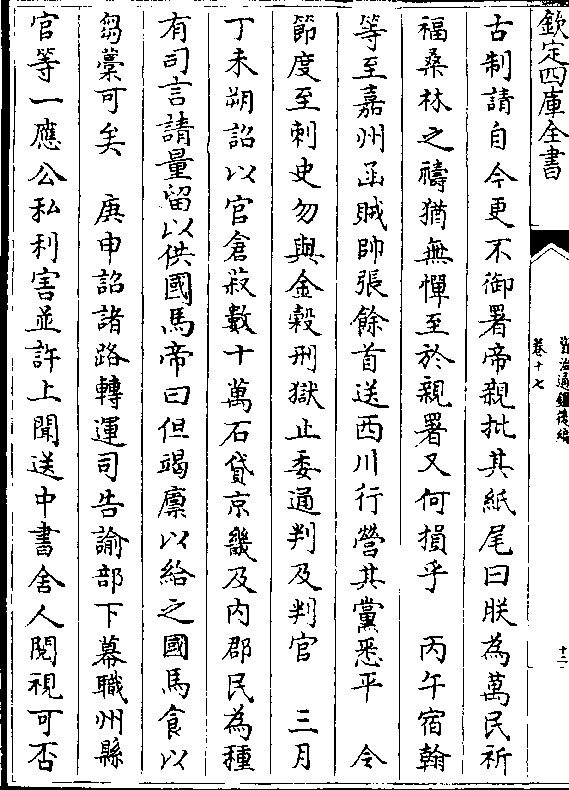 欽定四庫全書
資治通鑑後編
卷十七
十二
古制請自今更不御署帝親批其紙尾曰朕為萬民祈
福桑林之禱猶無憚至於親署又何損乎　丙午宿翰
等至嘉州函賊帥張餘首送西川行營其黨悉平　令
節度至刺史勿與金穀刑獄止委通判及判官　三月
丁未朔詔以官倉菽數十萬石貸京畿及内郡民為種
有司言請量留以供國馬帝曰但竭廩以給之國馬食以
芻藁可矣　庚申詔諸路轉運司告諭部下幕職州縣
官等一應公私利害並許上聞送中書舍人閱視可否